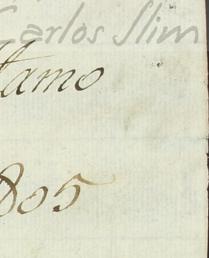 Carlos Slim
tamo
805